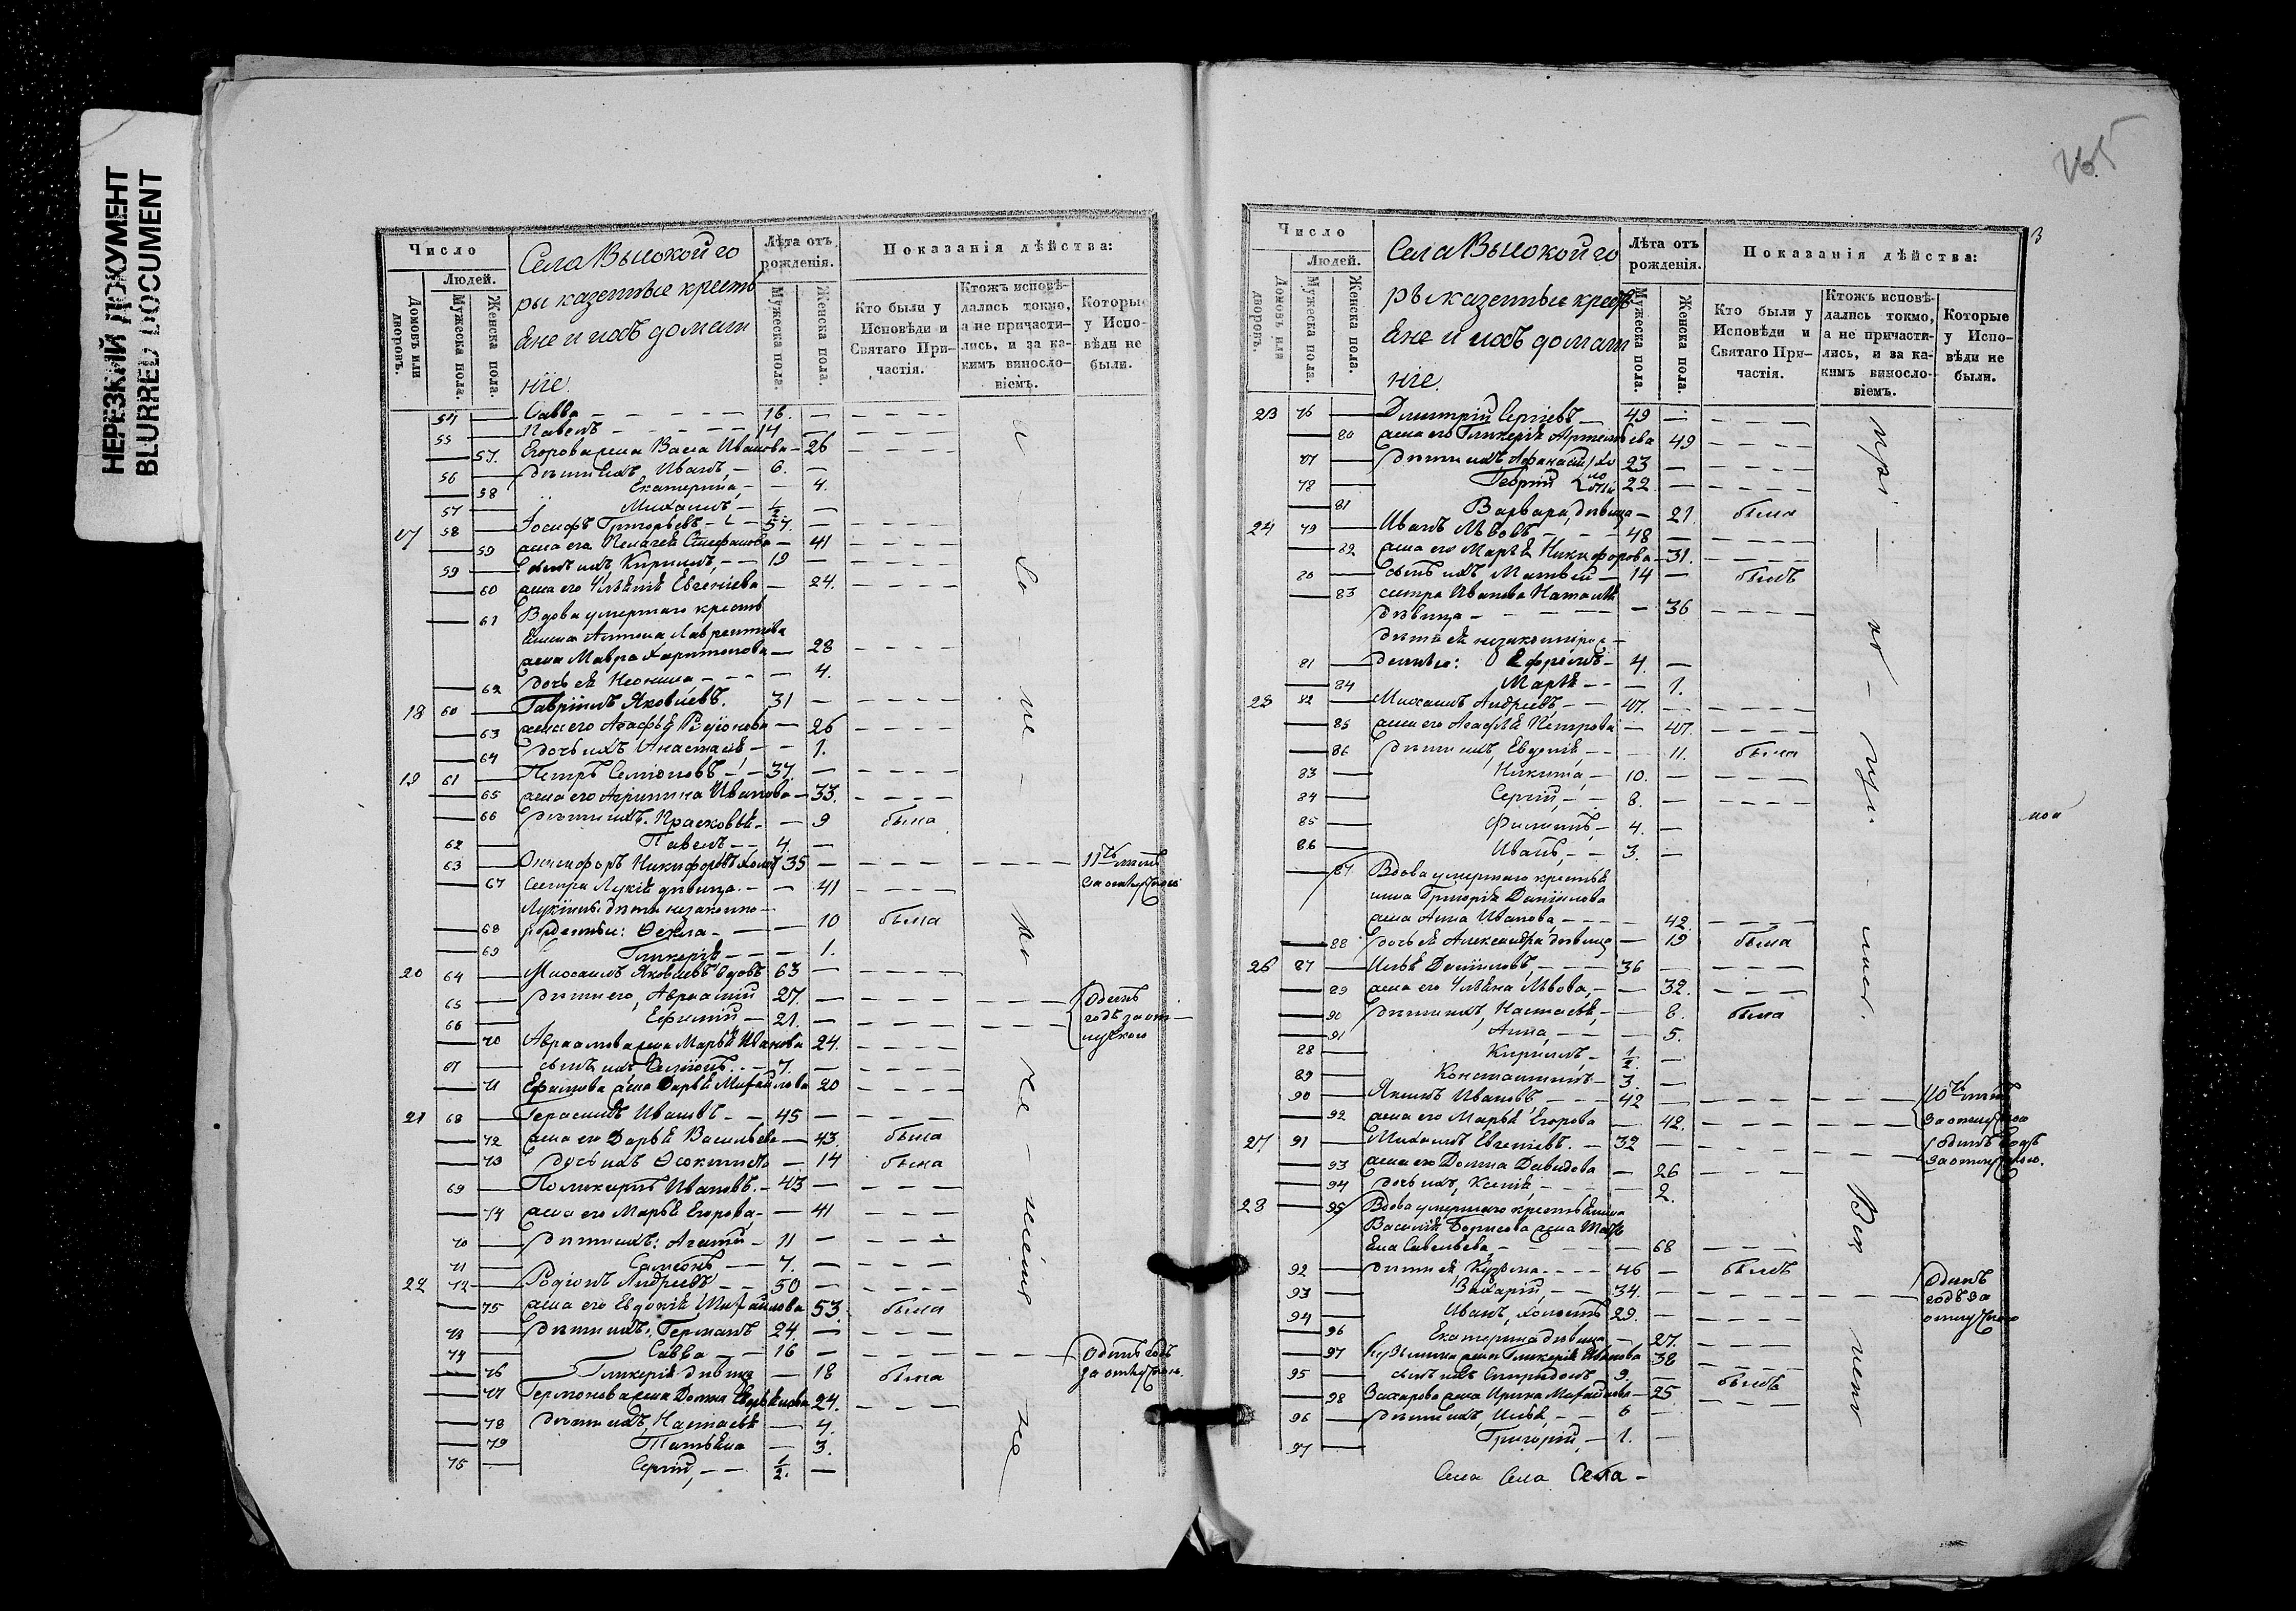 НЕРЕЗКИЙ ДОКУМЕНТ
BLURRED DOCUMENT
Число
Людей.
Домовъ или дворовъ.
Мужеска пола.
Женска пола.
Села Высокой го
ры казенные кресть
яне и ихъ домаш
ніе.
Лѣта отъ рожденія.
Мужеска пола.
Женска пола.
Показанія дѣйства:
Кто были у Исповѣди и Святаго Причастія.
Ктожъ исповѣдались токмо, а не причастились, и за какимъ винословіемъ.
Которые у Исповѣди не были.
54 Савва 16.
55 Павелъ 14
57. Егорова жена Васса Иванова 26
56 Дѣти ихъ, Иванъ, 6.
58 Екатерина, 4.
57 Михаилъ 1/2
17 58 Іосифъ Григорьевъ 57.
59 жена его Пелагея Стефанова 41
59 Сынъ ихъ, Кириллъ, 19
60 жена его Евгеніева 24.
61 Вдова умершаго кресть
янина Антона Лаврентіева
жена Мавра Харитонова 28
62 дочь ея Неонила 4.
18 60 Гавріилъ Яковлевъ. 31
63 жена его Агафья Родіонова 26
64 дочь ихъ Анастасія 1.
19 61 Петръ Семіоновъ 37.
65 жена его Агрипина Иванова 33.
66 Дѣти ихъ. Прасковья 9 была
62 Павелъ 4.
63 Онисифоръ Никифоровъ холост 35 11ть лѣтъ
67 Сестра Лукія дѣвица. 41 за отлучкою
Лукіины дѣти незаконно
68 рожденные: Ѳекла 10 была
69 Гликерія 1.
20 64 Михаилъ Яковлевъ вдовъ 63
65 Дѣти его, Авраамій 27. Одинъ
66 Ефимій 21. годъ за от
70 Авраамова жена Марья Иванова 24. лучкою
67 сынъ ихъ Симіонъ. 7.
71 Ефимова жена Дарья Михайлова 20
21 68 Герасимъ Ивановъ 45
72 жена его Дарья Васильева 43. была
73 дочь ихъ 14 была
69 Поликарпъ Ивановъ. 43
74 жена его Марья Егорова, 41
70 Дѣти ихъ: 11
71 Самсонъ 7.
22 72 Родіонъ Андреевъ 50
75 жена его Евдокія Михайлова 53. была
73 Дѣти ихъ, Германъ 24.
74 Савва 16 Одинъ годъ
76 Гликерія дѣвица 18 была за отлучкою.
77 Германова жена Домна 24.
78 Дѣти ихъ, Настасья 4.
79 Татьяна 3.
75 Сергій, 1/2.
265
3
Число
Людей.
Домовъ или дворовъ.
Мужеска пола.
Женска пола.
Села Высокой го
ры казенные кресть
яне и ихъ домаш
ніе.
Лѣта отъ рожденія.
Мужеска пола.
Женска пола.
Показанія дѣйства:
Кто были у Исповѣди и Святаго Причастія.
Ктожъ исповѣдались токмо, а не причастились, и за какимъ винословіемъ.
Которые у Исповѣди не были.
23 76 Димитрій Сергіевъ 49
80 жена его Гликерія Артемьева 49
77 Дѣти ихъ, Афанасій хо 23
78 Георгій лостые 22
81 Варвара, дѣвица 21 была
24 79 Иванъ Львовъ 48
82 жена его Марья Никифорова 31.
80 сынъ ихъ, Матвей 14 былъ
83 сестра Иванова Наталья
дѣвица 36
дѣти ея незаконнорож
81 денные: Ефремъ 4.
84 Марья 1.
25 82 Михаилъ Андреевъ, 47.
85 жена его Агафья Петрова 47.
86 Дѣти ихъ, Евдокія 11. была
83 Никита, 10.
84 Сергій, 8.
85 Филиппъ, 4.
86 Иванъ, 3.
87 Вдова умершаго крестья
нина Григорія Даніилова
жена Анна Иванова, 42.
88 дочь ея Александра дѣвица 19 была
26 87 Илья Даніиловъ, 36
89 жена его Ульяна Львова, 32.
90 Дѣти ихъ, Настасья, 8. была
91 Анна, 5.
88 Кириллъ, 1/2.
89 Константинъ 3.
90 Якимъ Ивановъ 42 10ть лѣтъ
92 жена его Марья Егорова 42. за отлучкою
27 91 Михаилъ Евгеніевъ. 32 Одинъ годъ
93 жена его Домна Давидова 26 за отлучкою.
94 дочь ихъ, Ксенія, 2.
28 95 Вдова умершаго крестьянина
Василія Борисова жена Тать
яна Савельева, 68
92 Дѣти ея Кузьма 46 былъ Одинъ
93 Захарій, 34. годъ за
94 Иванъ, холостъ 29. отлучкою
96 Екатерина дѣвица 27.
97 Кузьмина жена Гликерія Иванова 38
95 сынъ ихъ Спиридонъ 9. былъ
98 Захарова жена Ирина Михайлова 25
96 Дѣти ихъ, Илья 6
97 Григорій, 1.
Села Села Села